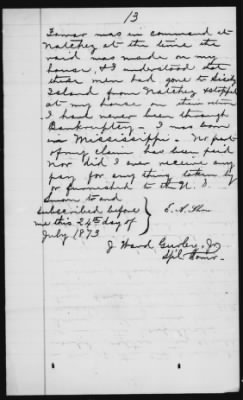 13
Farrar was in command at
Natchez at the time the
raid was made on my
house, & I understood that
these men had gone to
Island from Natchez & stopped
at my house on their return
I had never been through
Bankruptcy. I was born
in Mississippi. No part
of my claim has been paid
nor did I ever receive any
pay for any thing taken by
or furnished to the U. S.
Sworn to and
subscribed before
me this 24th day of
July 1873
E. A.
J Ward Gurley, Jr
Spl Comr.